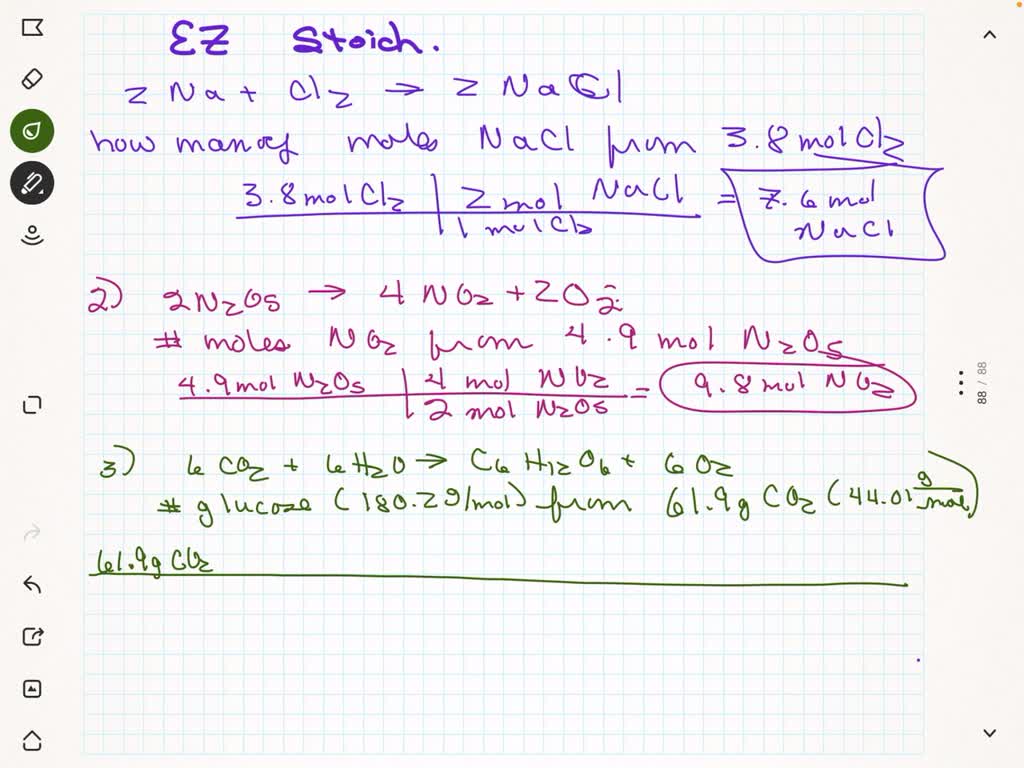 EZ Stoich.
2 Na + Cl2 → 2 NaCl
how many moles NaCl from 3.8 mol Cl2
3.8 mol Cl2 | 2 mol NaCl = 7.6 mol
1 mol Cl2 NaCl
2) 2N2O5 → 4 NO2 + 2O2
# moles NO2 from 4.9 mol N2O5
4.9 mol N2O5 | 4 mol NO2 = 9.8 mol NO2
2 mol N2O5
3) 6 CO2 + 6H2O → C6H12O6 + 6 O2
# glucose (180.2g/mol) from 61.9g CO2 (44.01 g/mol)
61.9g CO2
88 / 88